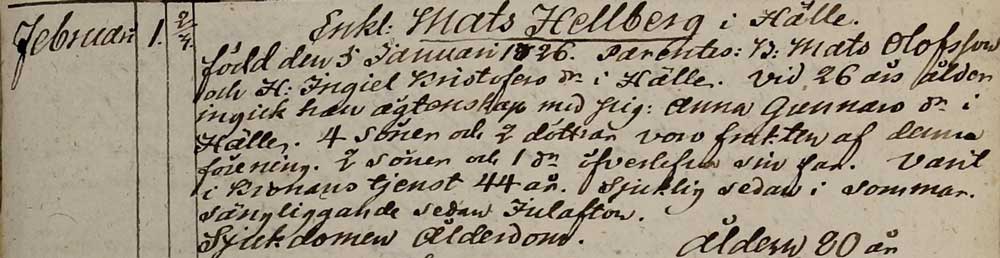 Februari 1. 2/4. Enkl. Mats Hellberg i Hälle.
född den 5 Januari 1726. Parentes: B: Mats Olofsson
och H: Ingiel Kristofers dr i Hälle. Vid 26 års ålder
ingick han ägtenskap med pig: Anna Gunnars dr i
Hälle. 4 söner och 2 döttrar voro frukten af denna
förening. 2 söner och 1 dr öfverlefva sin far. Varit
i Kronans tjenst 44 år. Sjuklig sedan i sommar.
sängliggande sedan Julafton.
Sjukdomen Ålderdom. Åldern 80 år